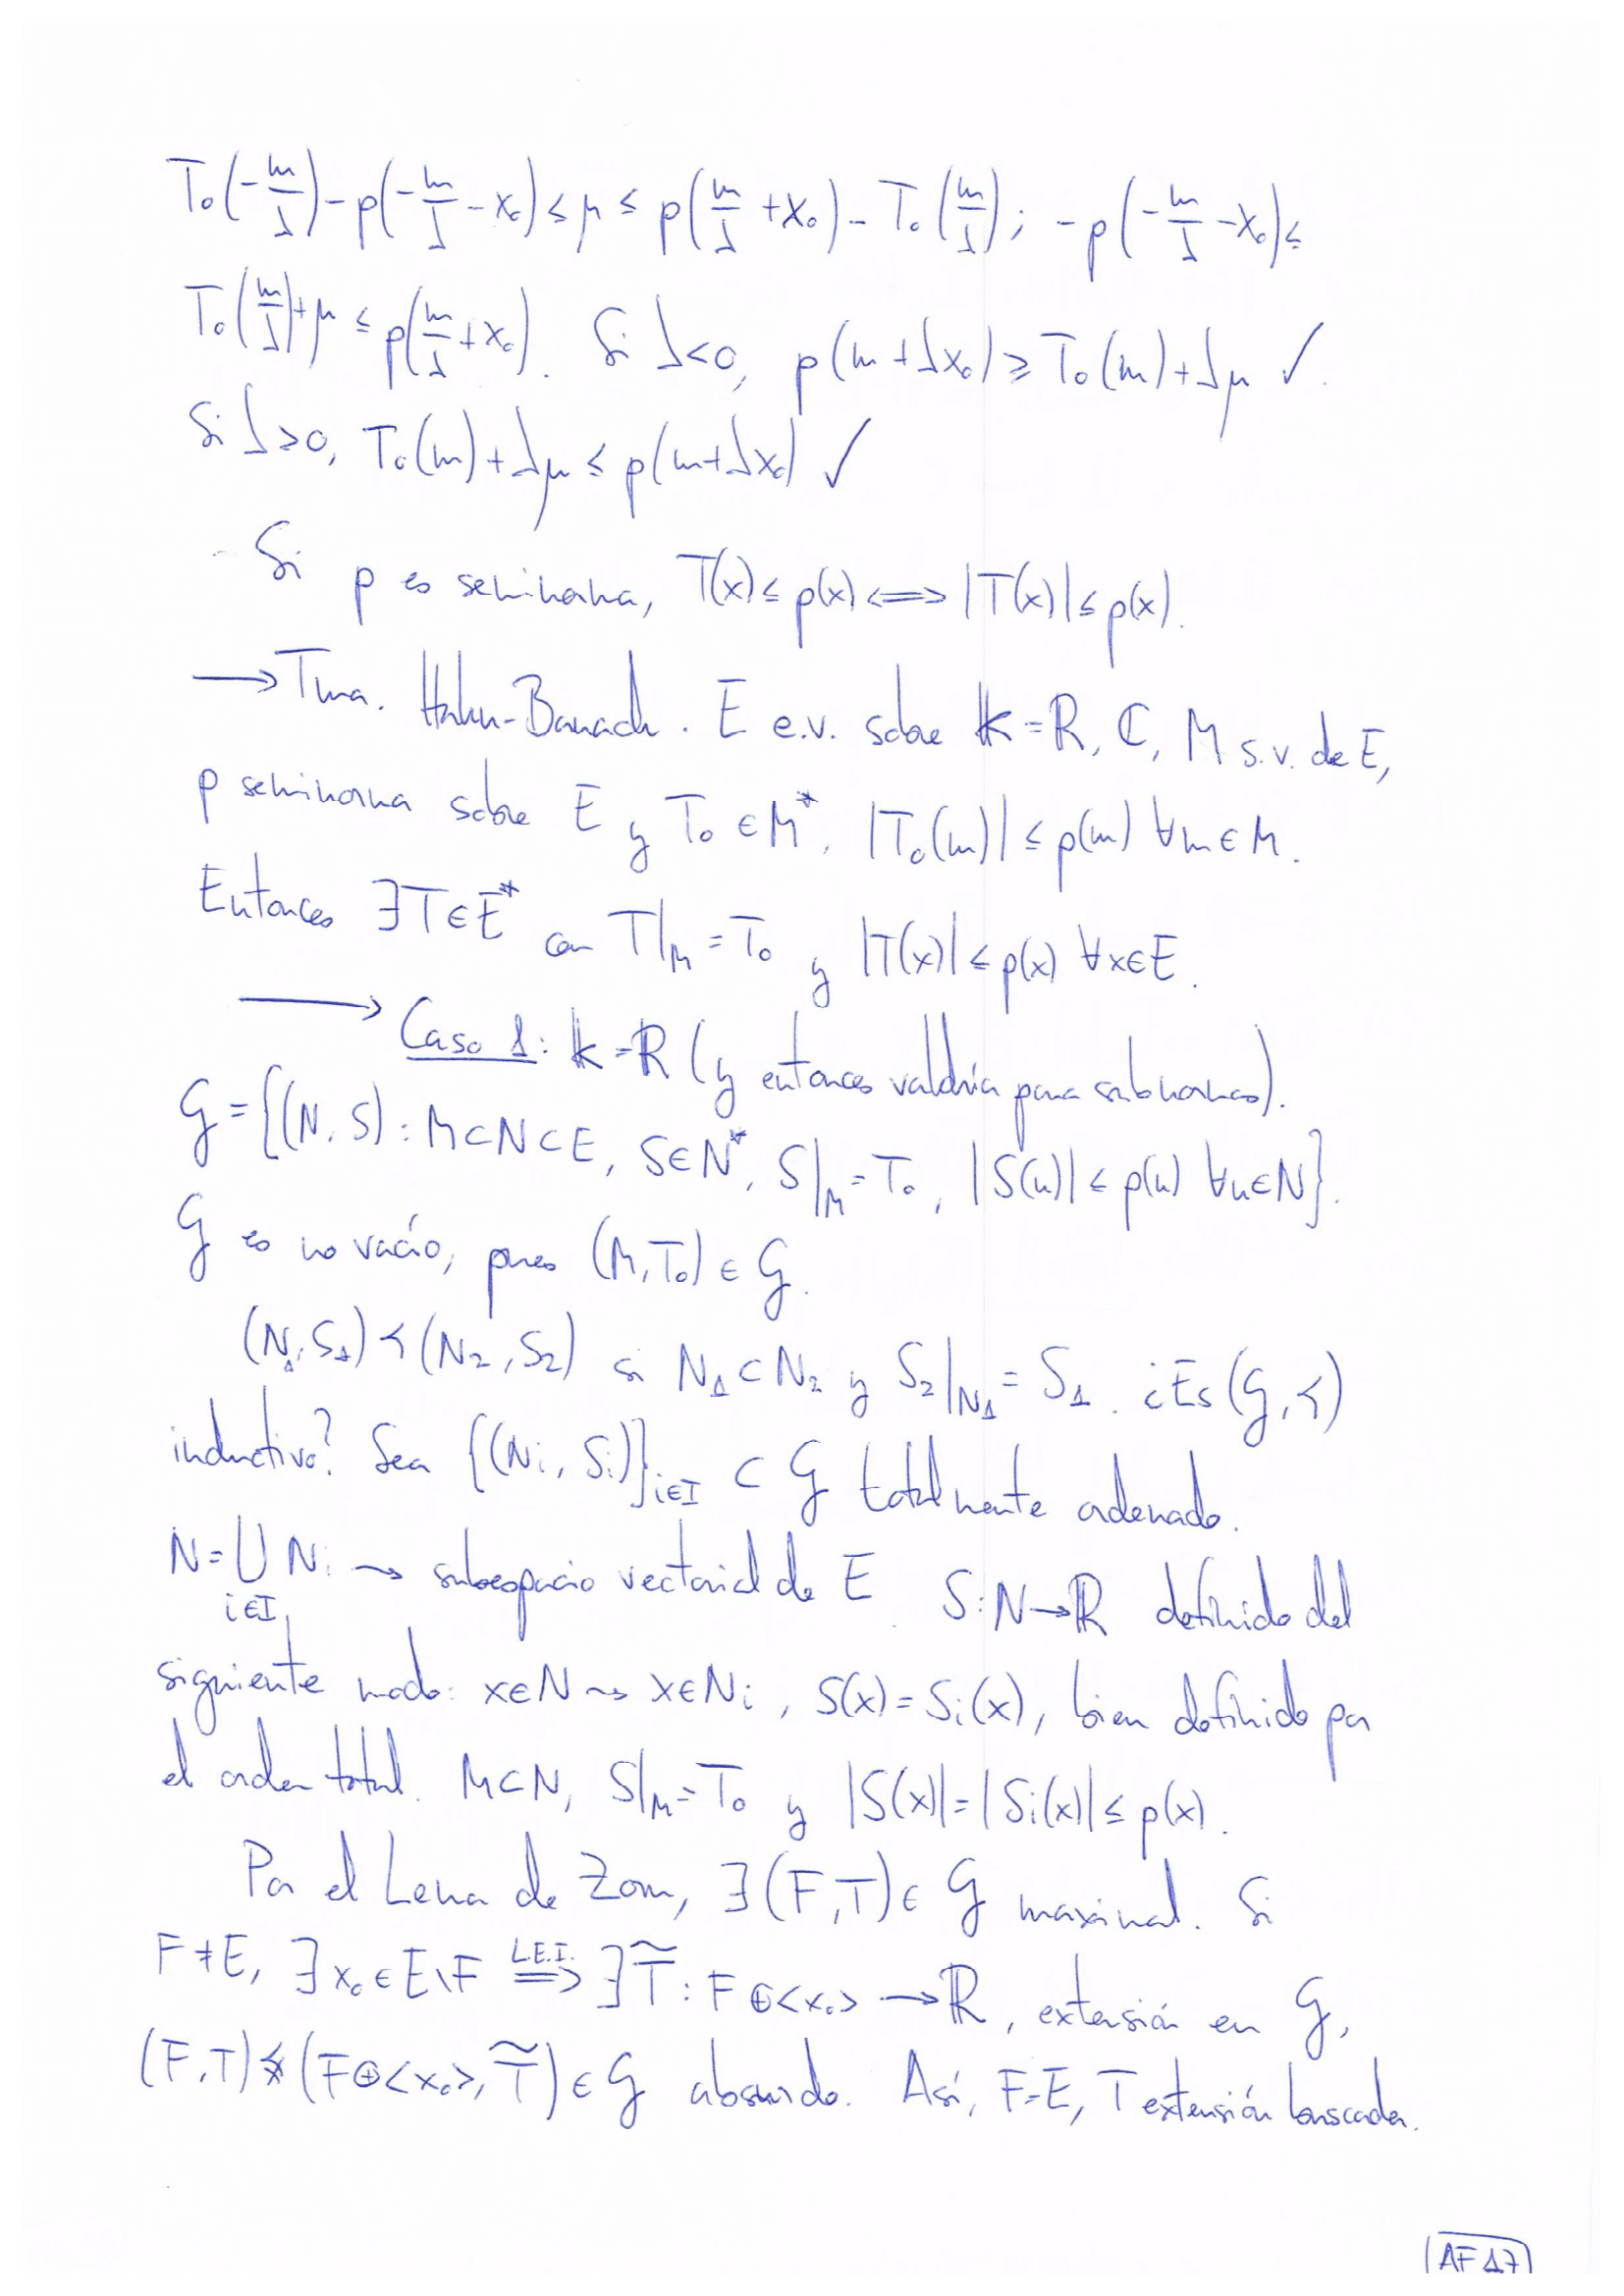 T₀(-m/λ) - p(-m/λ - x₀) ≤ μ ≤ p(m/λ + x₀) - T₀(m/λ); -p(-m/λ - x₀) ≤
T₀(m/λ) + μ ≤ p(m/λ + x₀). Si λ<0, p(m+λx₀) ≥ T₀(m) + λμ ✓.
Si λ>0, T₀(m) + λμ ≤ p(m+λx₀) ✓
- Si p es seminorma, T(x) ≤ p(x) ⟺ |T(x)| ≤ p(x).
→ Tma. Hahn-Banach. E e.v. sobre 𝕂=ℝ, ℂ, M s.v. de E,
p seminorma sobre E y T₀ ∈ M*, |T₀(m)| ≤ p(m) ∀m∈M.
Entonces ∃T∈E* con T|_M = T₀ y |T(x)| ≤ p(x) ∀x∈E.
→ Caso 1: 𝕂=ℝ (y entonces valdría para subnormas).
G = {(N, S) : M⊂N⊂E, S∈N*, S|_M = T₀, |S(n)| ≤ p(n) ∀n∈N}.
G es no vacío, pues (M, T₀) ∈ G.
(N₁, S₁) ≺ (N₂, S₂) si N₁⊂N₂ y S₂|_N₁ = S₁. ¿Es (G, ≺)
inductivo? Sea {(Ni, Si)}_{i∈I} ⊂ G totalmente ordenado.
N = ⋃_{i∈I} Ni ⇝ subespacio vectorial de E. S: N→ℝ definido del
siguiente modo: x∈N ⇝ x∈Ni, S(x) = Si(x), bien definido por
el orden total. M⊂N, S|_M = T₀ y |S(x)| = |Si(x)| ≤ p(x).
Por el Lema de Zorn, ∃(F, T) ∈ G maximal. Si
F≠E, ∃x₀∈E\F ⟹ (L.E.I.) ∃T̃ : F⊕<x₀> → ℝ, extensión en G,
(F, T) ⪹ (F⊕<x₀>, T̃) ∈ G absurdo. Así, F=E, T extensión buscada.
AF 17